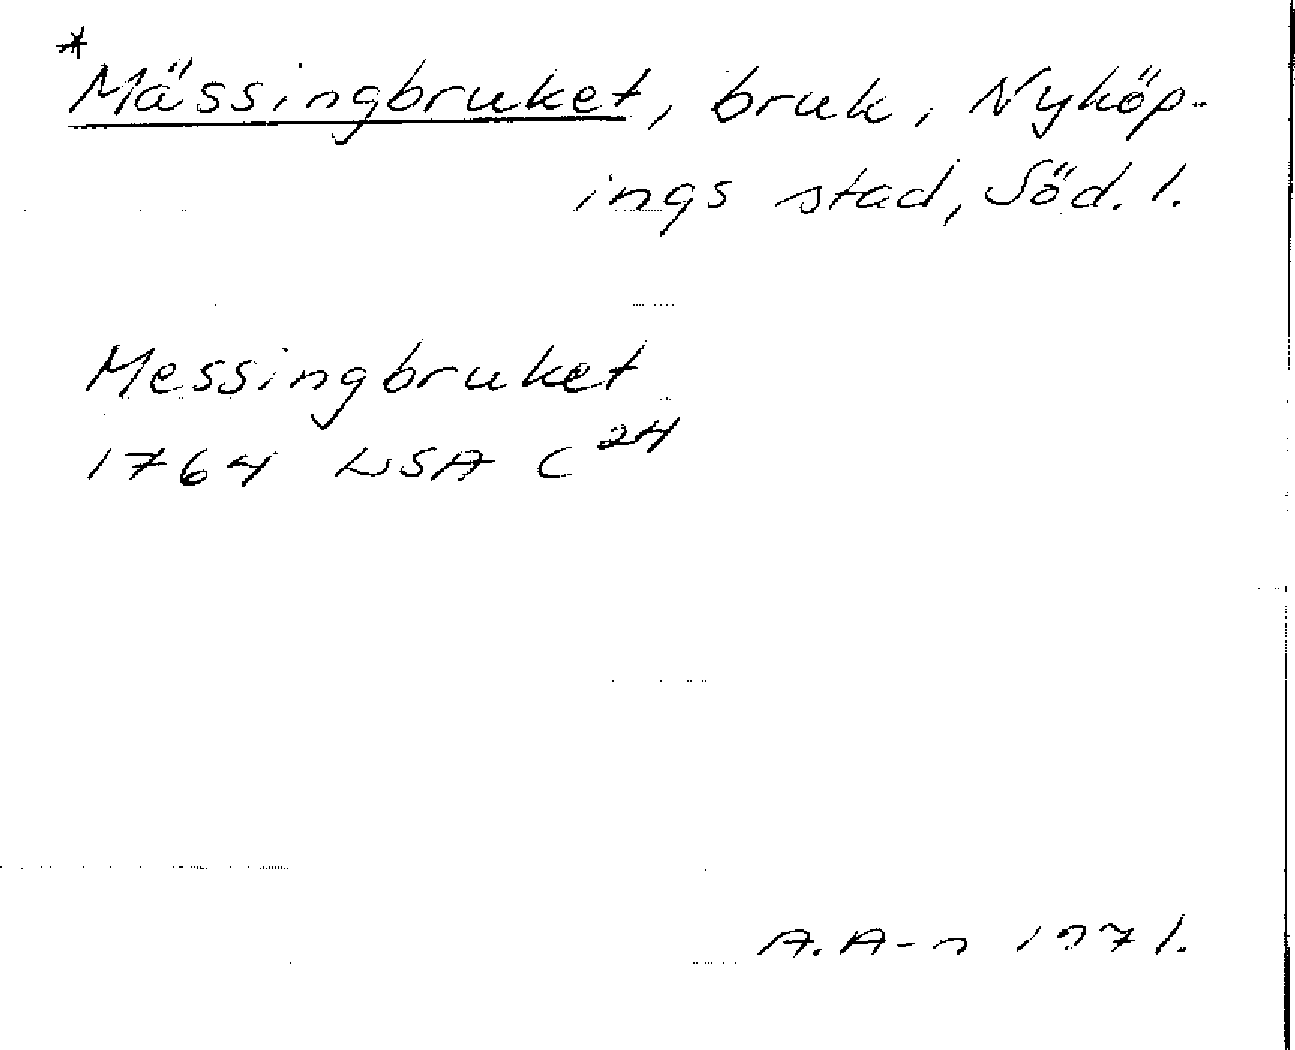 *Mässingbruket, bruk, Nyköp-
ings stad, Söd. l.
Messingbruket
1764 LSA C 24
A. A-n 1971.